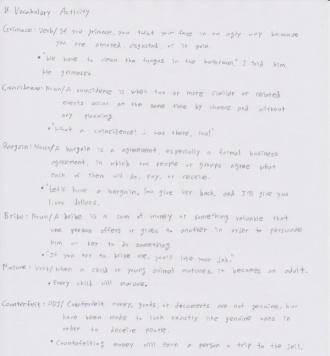 B. Vocabulary Activity
Grimace: Verb/If you grimace, you twist your face in an ugly way because
you are annoyed, disgusted, or in pain.
• "We have to clean the fungus in the bathroom," I told him
He grimaced.
Coincidence: Noun/A coincidence is when two or more similar or related
events occur at the same time by chance and without
any planning.
• "What a coincidence! I was there, too!"
Bargain: Noun/A bargain is a agreement, especially a formal business
agreement, in which two people or groups agree what
each of them will do, pay, or receive.
• "Let's have a bargain. You give her back, and I'll give you
dollars.
Bribe: Noun/A bribe is a sum of money or something valuable that
one person offers or gives to another in order to persuade
him or her to do something.
• "If you try to bribe me, you'll lose your job."
Mature: Verb/When a child or young animal matures, it becomes an adult.
• Every child will mature.
Counterfeit: ADJ/Counterfeit money, goods, or documents are not genuine, but
have been made to look exactly like genuine ones in
order to deceive people.
• Counterfeiting money will earn a person a trip to the jail.